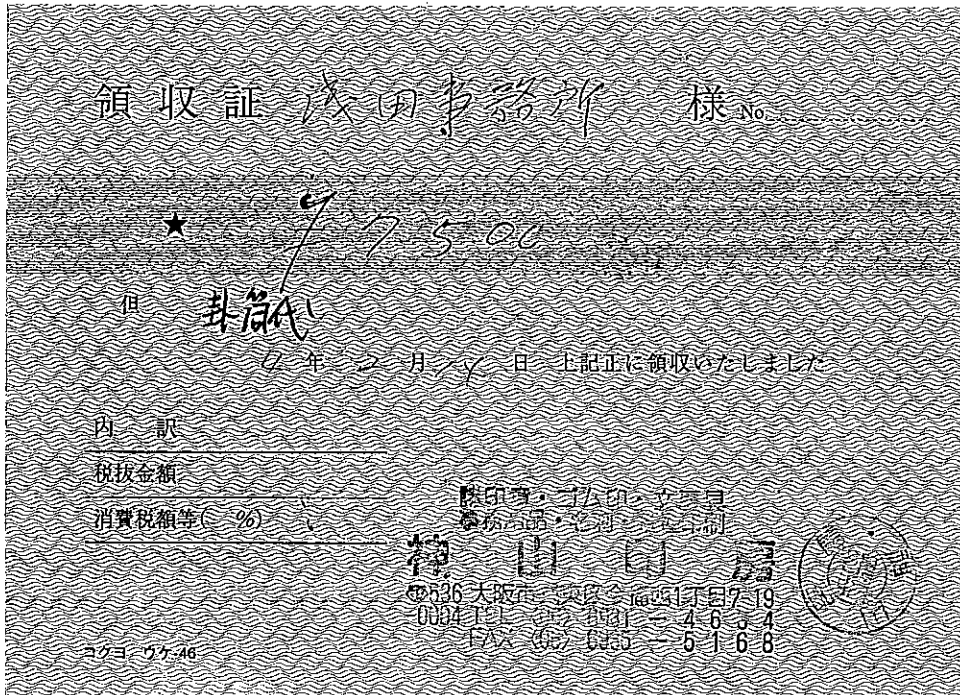 領収証 浅田事務所 様 No.
★ ¥7500
但 封筒代
年 2 月 14 日 上記正に領収いたしました
内 訳
税抜金額
消費税額等( %)
印章・ゴム印・文房具
神山印房
〒536 大阪市 1丁目7-19
0004 TEL 4634
FAX 5168
コクヨ ウケ-46